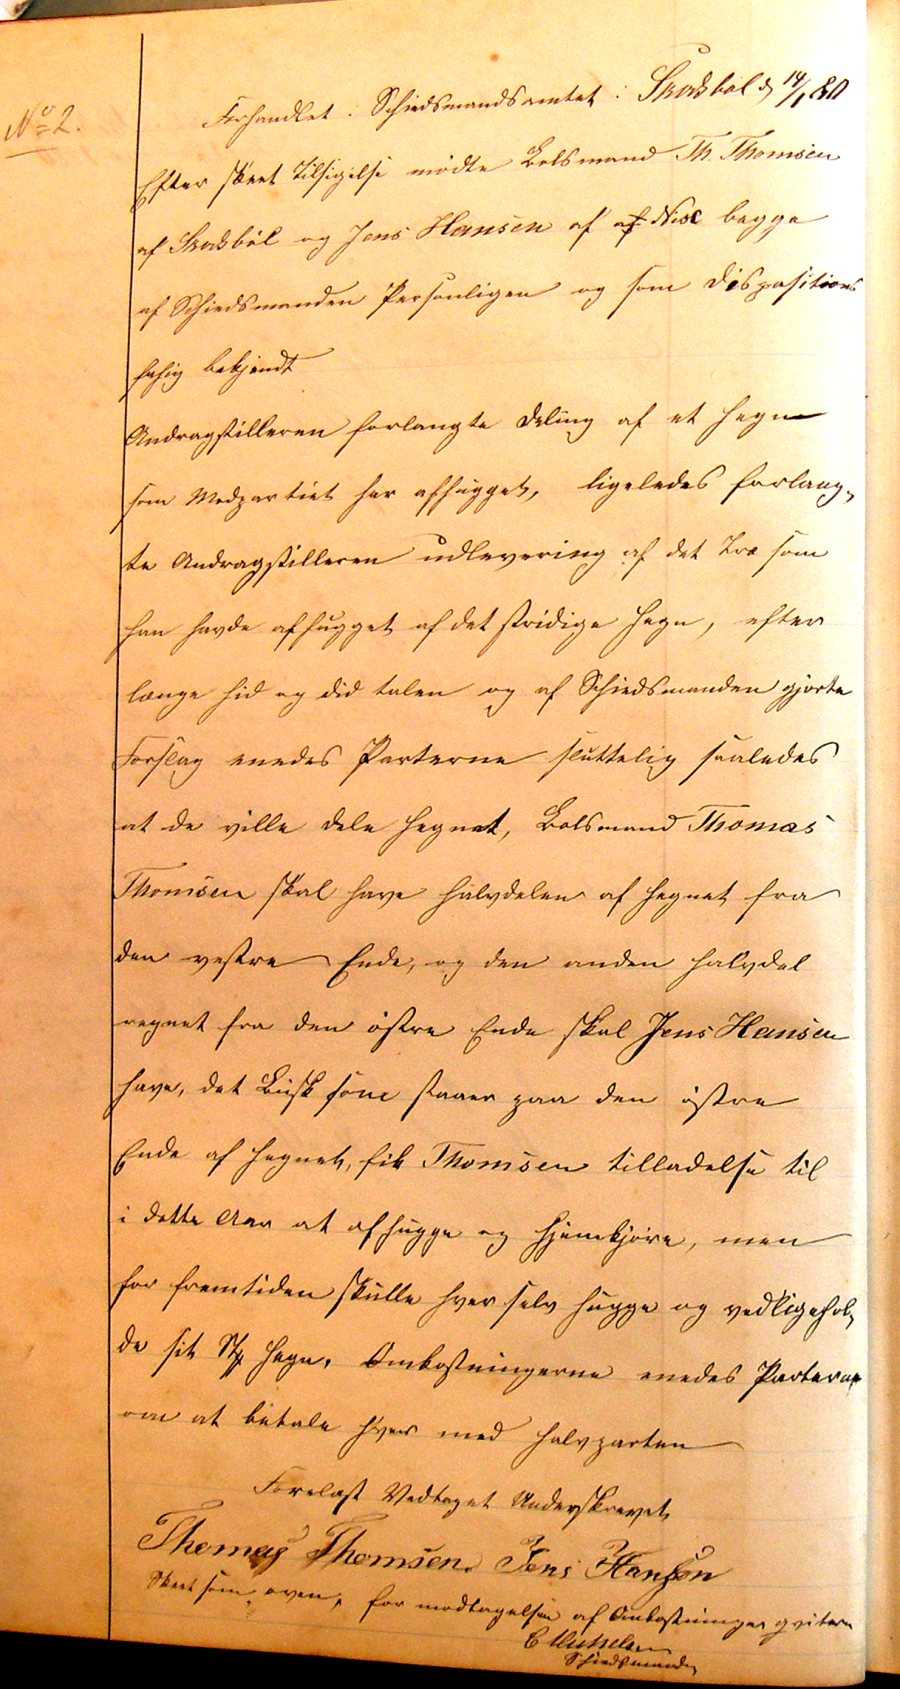 No 2.
Forhandlet i Schiedsmandsamtet i Skodsbøl d 14/1 80
Efter skeet Tilsigelse mødte Bolsmand Th. Thomsen
af Skodsbøl og Jens Hansen af af Nøst begge
af Schiedsmanden Personligen og som dispositions
fæhig bekjendt
Andragstilleren forlangte Deling af et Hegn
som Modpartiet har afhugget, ligeledes forlang-
te Andragstilleren udlevering af det Træ som
han havde afhugget af det stridige Hegn, efter
længe hid og did talen og af Schiedsmanden gjorte
Forslag enedes Parterne sluttelig saaledes
at de ville dele Hegnet, Bolsmand Thomas
Thomsen skal have halvdelen af Hegnet fra
den vestre Ende, og den anden halvdel
regnet fra den østre Ende skal Jens Hansen
have, det Busk som staaer paa den østre
Ende af Hegnet, fik Thomsen tilladelse til
i dette Aar at afhugge og hjemkjøre, men
for fremtiden skulle hver selv hugge og vedligehol-
de sit Stk Hegn. Omkostningerne enedes Parterne
om at betale hver med halvparten
Forelæst Vedtaget Underskrevet
Thomas Thomsen. Jens Hansen
Skeet som oven, for modtagelsen af Omkostninger qvitere
Schiedsmand